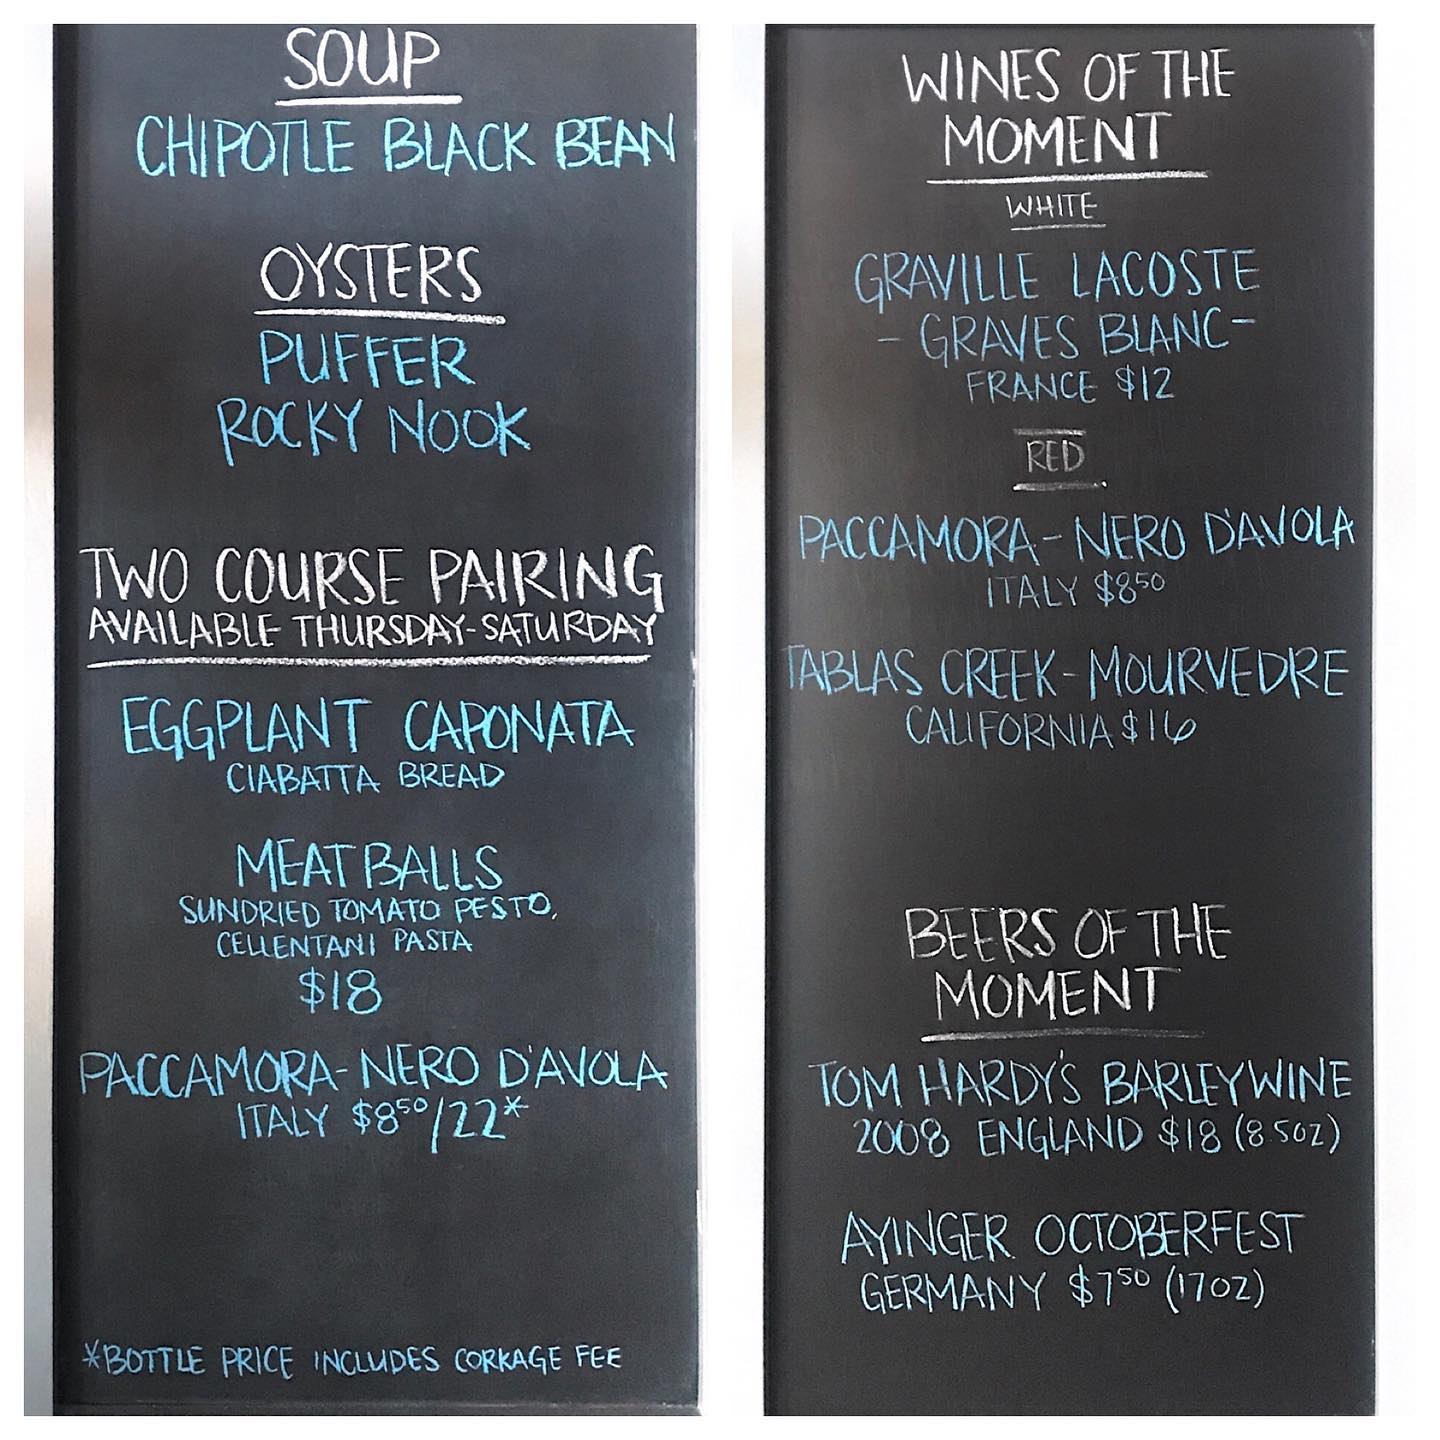 SOUP
CHIPOTLE BLACK BEAN
OYSTERS
PUFFER
ROCKY NOOK
TWO COURSE PAIRING
AVAILABLE THURSDAY-SATURDAY
EGGPLANT CAPONATA
CIABATTA BREAD
MEATBALLS
SUNDRIED TOMATO PESTO,
CELLENTANI PASTA
$18
PACCAMORA-NERO D'AVOLA
ITALY $8⁵⁰/22*
*BOTTLE PRICE INCLUDES CORKAGE FEE
WINES OF THE
MOMENT
WHITE
GRAVILLE LACOSTE
- GRAVES BLANC-
FRANCE $12
RED
PACCAMORA-NERO D'AVOLA
ITALY $8⁵⁰
TABLAS CREEK-MOURVEDRE
CALIFORNIA $16
BEERS OF THE
MOMENT
TOM HARDY'S BARLEYWINE
2008 ENGLAND $18 (8.5OZ)
AYINGER OCTOBERFEST
GERMANY $7⁵⁰ (17OZ)